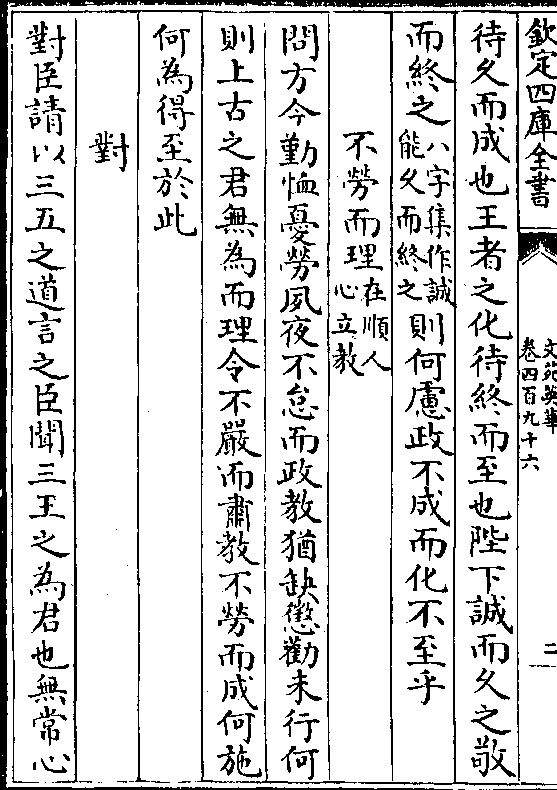 欽定四庫全書
文苑英華
卷四百九十六
二
待久而成也王者之化待終而至也陛下誠而久之敬
而終之八字集作誠能久而終之則何慮政不成而化不至乎
不勞而理在順人心立教
問方今勤恤憂勞夙夜不怠而政教猶缺懲勸未行何
則上古之君無為而理令不嚴而肅教不勞而成何施
何為得至於此
對
對臣請以三五之道言之臣聞三王之為君也無常心